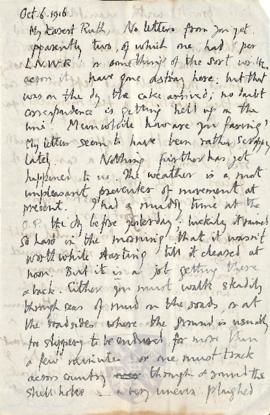 Oct. 6. 1916
My dearest Ruth, No letters from you yet.
apparently two, of which one had per
L.N.W.R. or something of the sort written
across it, have gone astray here; but that
was on the day the cake arrived; no doubt
correspondence is getting held up on the
line. Meanwhile how are you faring?
My letters seem to have been rather scrappy
lately. Nothing further has yet
happened to us. The weather is a most
unpleasant preventer of movement at
present. I had a muddy time at the
O.P. the day before yesterday; luckily it rained
so hard in the morning that it wasn't
worth while starting till it cleared at
noon. But it is a job getting there
& back. Either you must walk steadily
through seas of mud in the roads or at
the roadsides where the ground is usually
too slippery to be endured for more than
a few minutes or one must track
across country through & round the
shell holes very uneven ploughed